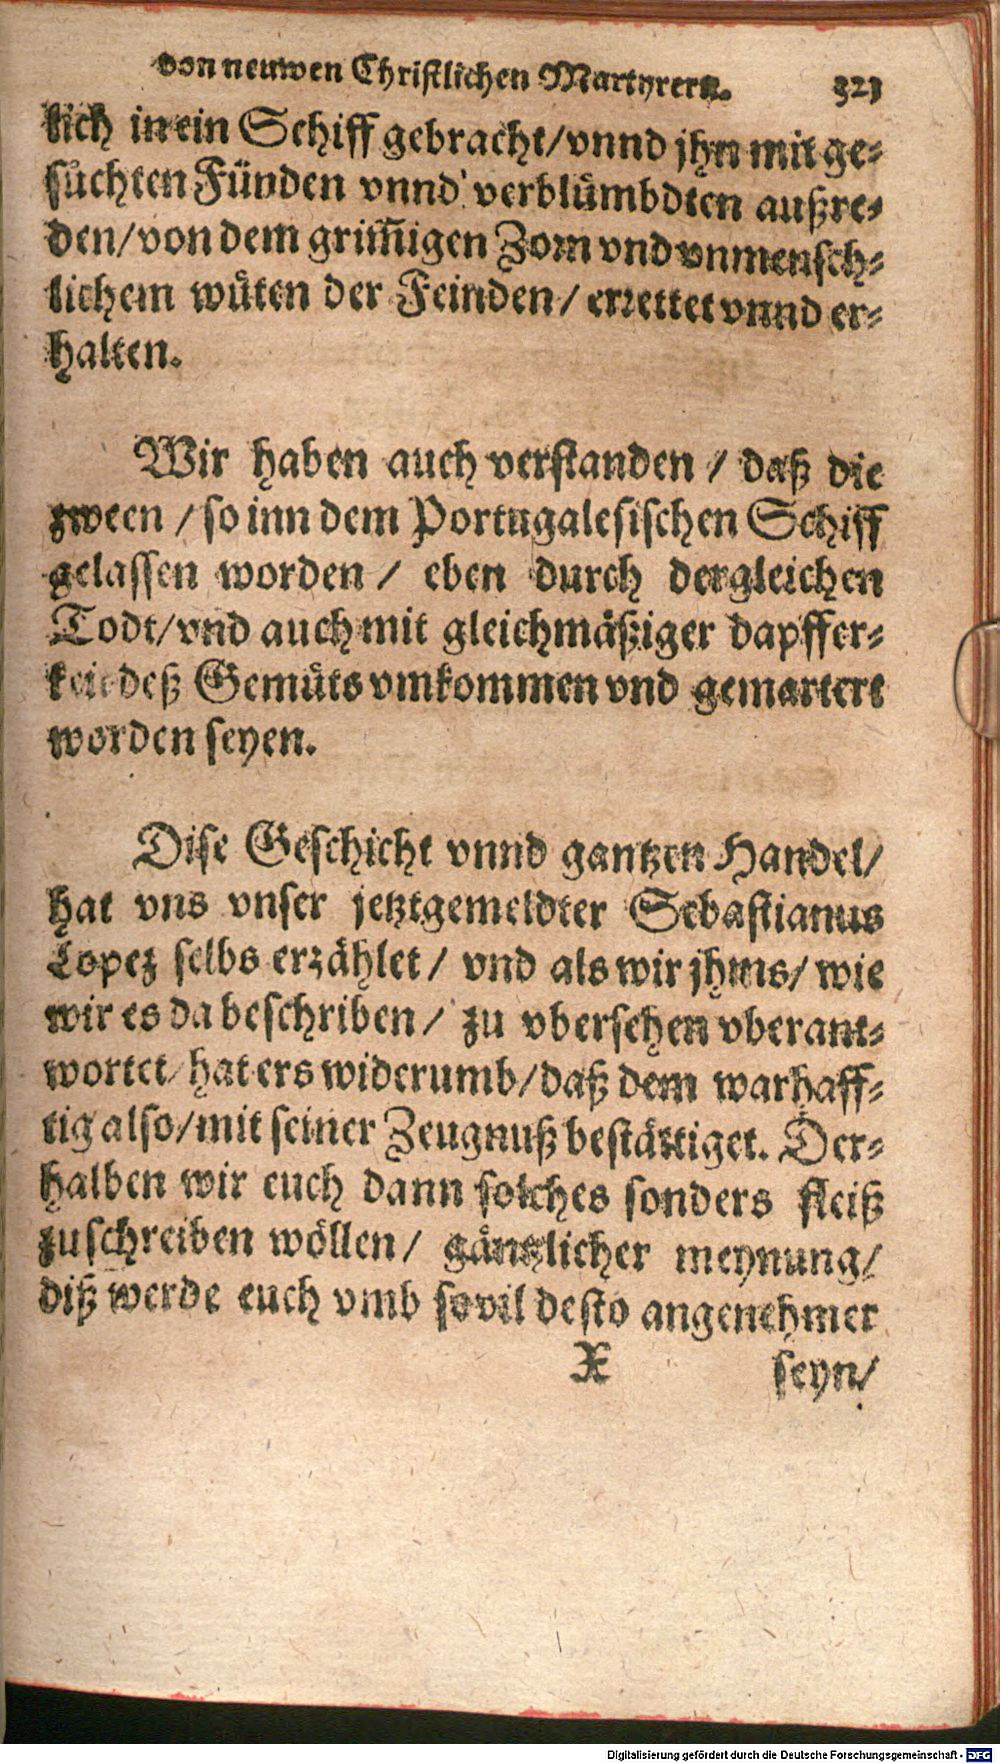 von neuwen Christlichen Martyrern. 321
lich in ein Schiff gebracht/vnnd jhn mit ge-
süchten Fünden vnnd verblümbdten außre-
den/von dem grim̃igen Zorn vnd vnmensch-
lichem wüten der Feinden/ errettet vnnd er-
halten.
Wir haben auch verstanden / daß die
zween / so inn dem Portugalesischen Schiff
gelassen worden / eben durch dergleichen
Todt/vnd auch mit gleichmäßiger dapffer-
keit deß Gemüts vmkommen vnd gemartert
worden seyen.
Dise Geschicht vnnd gantzen Handel/
hat vns vnser jetztgemeldter Sebastianus
Lopez selbs erzählet/ vnd als wir jhms/ wie
wir es da beschriben/ zu vbersehen vberant-
wortet/ hat ers widerumb/daß dem warhaff-
tig also/mit seiner Zeugnuß bestättiget. Der-
halben wir euch dann solches sonders fleiß
zuschreiben wöllen/ gäntzlicher meynung/
diß werde euch vmb sovil desto angenehmer
X seyn/
Digitalisierung gefördert durch die Deutsche Forschungsgemeinschaft - DFG